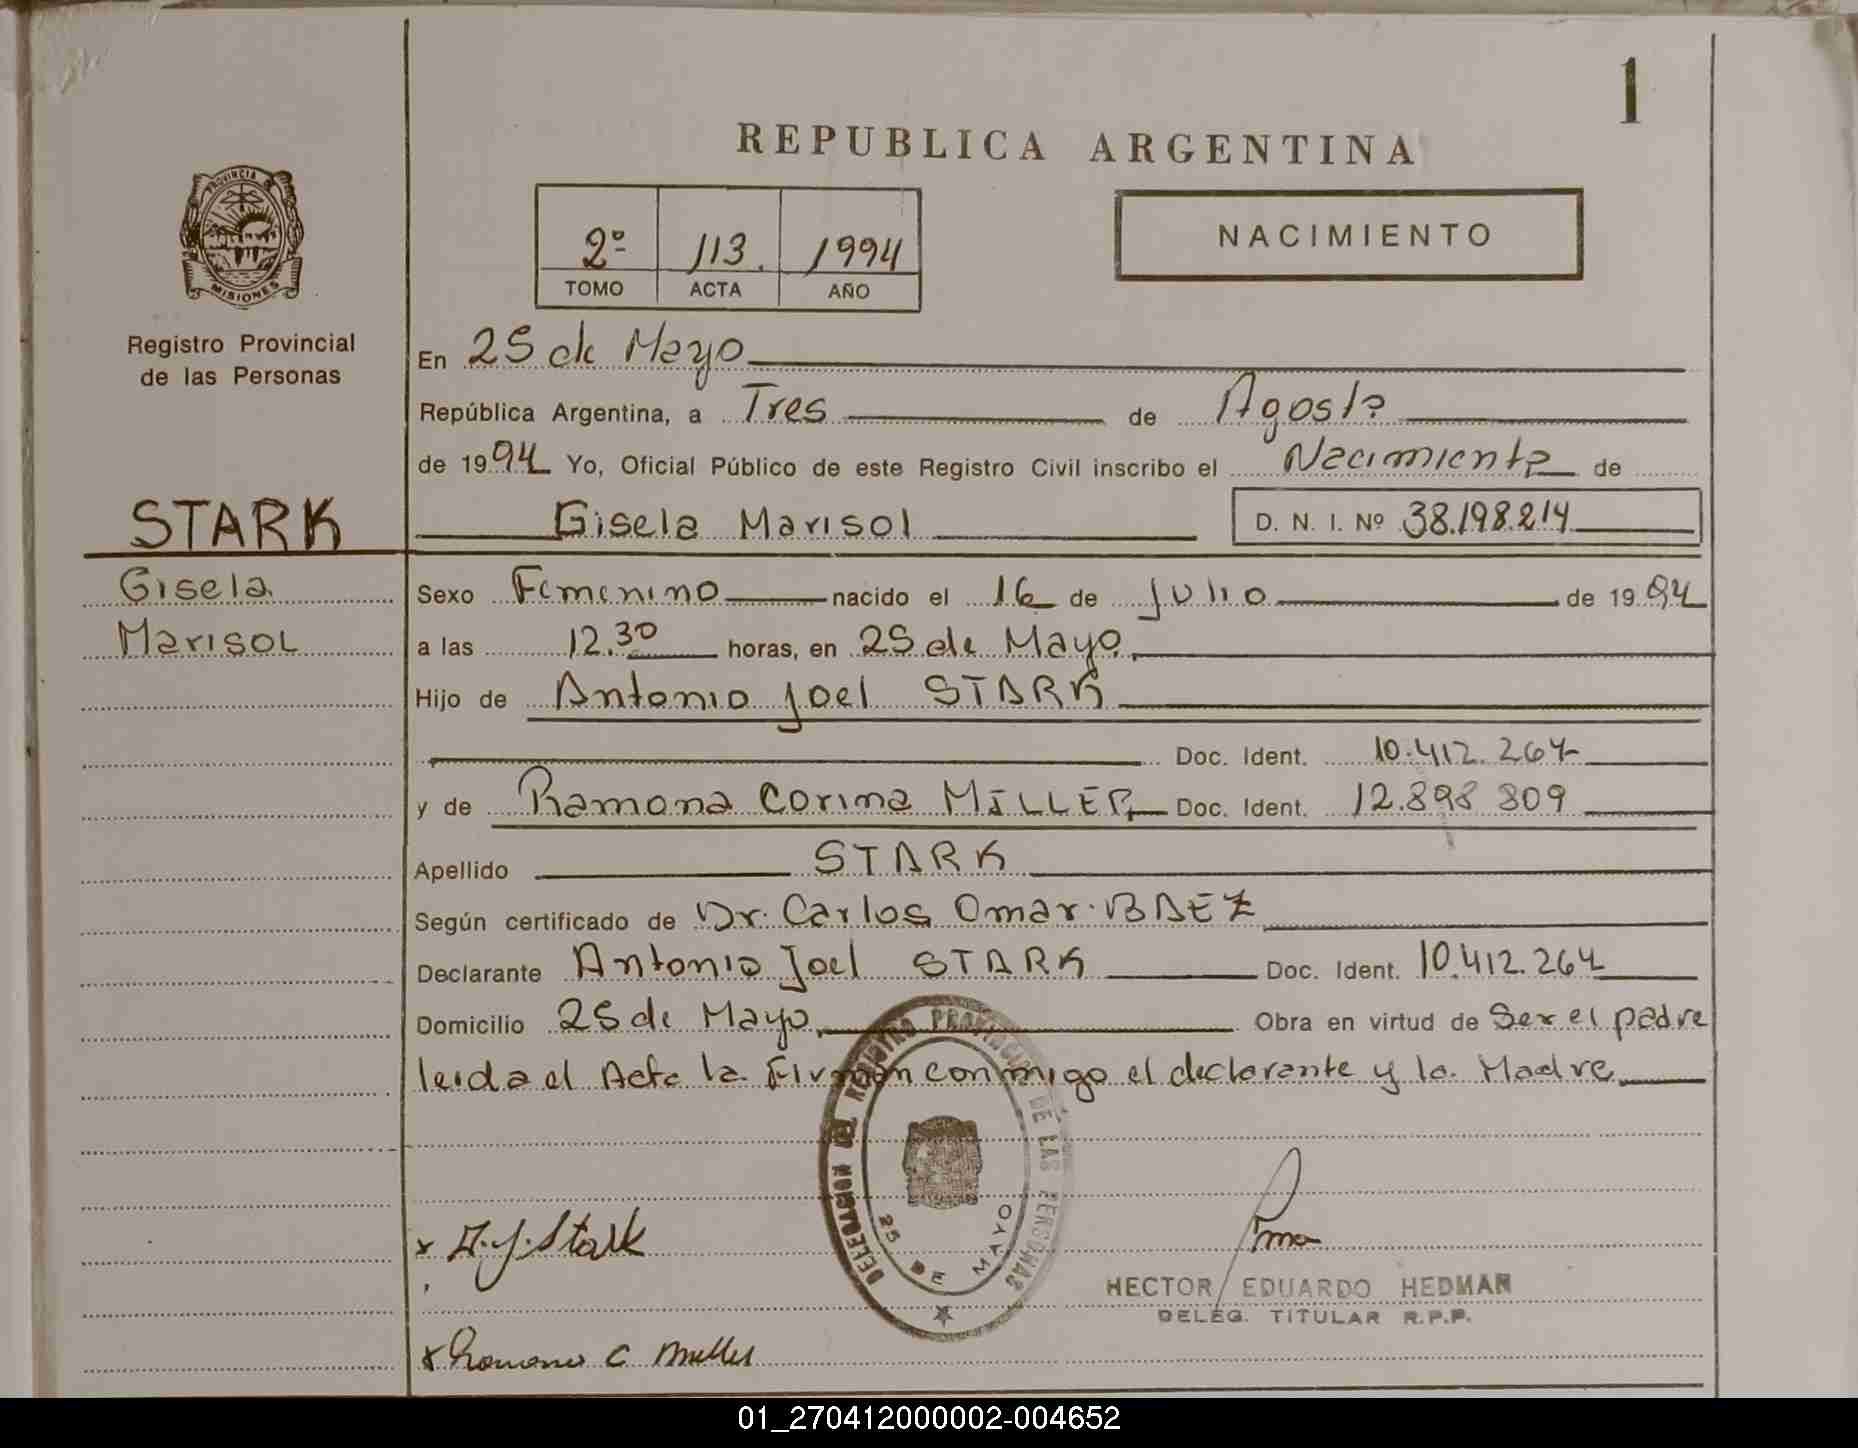 1
REPUBLICA ARGENTINA
PROVINCIA
MISIONES
Registro Provincial
de las Personas
2º 113. 1994
TOMO ACTA AÑO
NACIMIENTO
En 25 de Mayo
República Argentina, a Tres de Agosto
de 1994 Yo, Oficial Público de este Registro Civil inscribo el Nacimiento de
STARK
Gisela Marisol D. N. I. Nº 38.198.214
Gisela
Marisol
Sexo Femenino nacido el 16 de Julio de 1994
a las 12.30 horas, en 25 de Mayo.
Hijo de Antonio Joel STARK
Doc. Ident. 10.412.264
y de Ramona Corina MILLER Doc. Ident. 12.898 809
Apellido STARK
Según certificado de Dr. Carlos Omar BAEZ
Declarante Antonio Joel STARK Doc. Ident. 10.412.264
Domicilio 25 de Mayo, Obra en virtud de Ser el padre
leida el Acta la Firman conmigo el declarante y la Madre
DELEGACION DEL REGISTRO PROVINCIAL DE LAS PERSONAS
25 DE MAYO
x A.J. Stark
HECTOR EDUARDO HEDMAN
DELEG. TITULAR R.P.P.
x Ramona C Miller
01_270412000002-004652